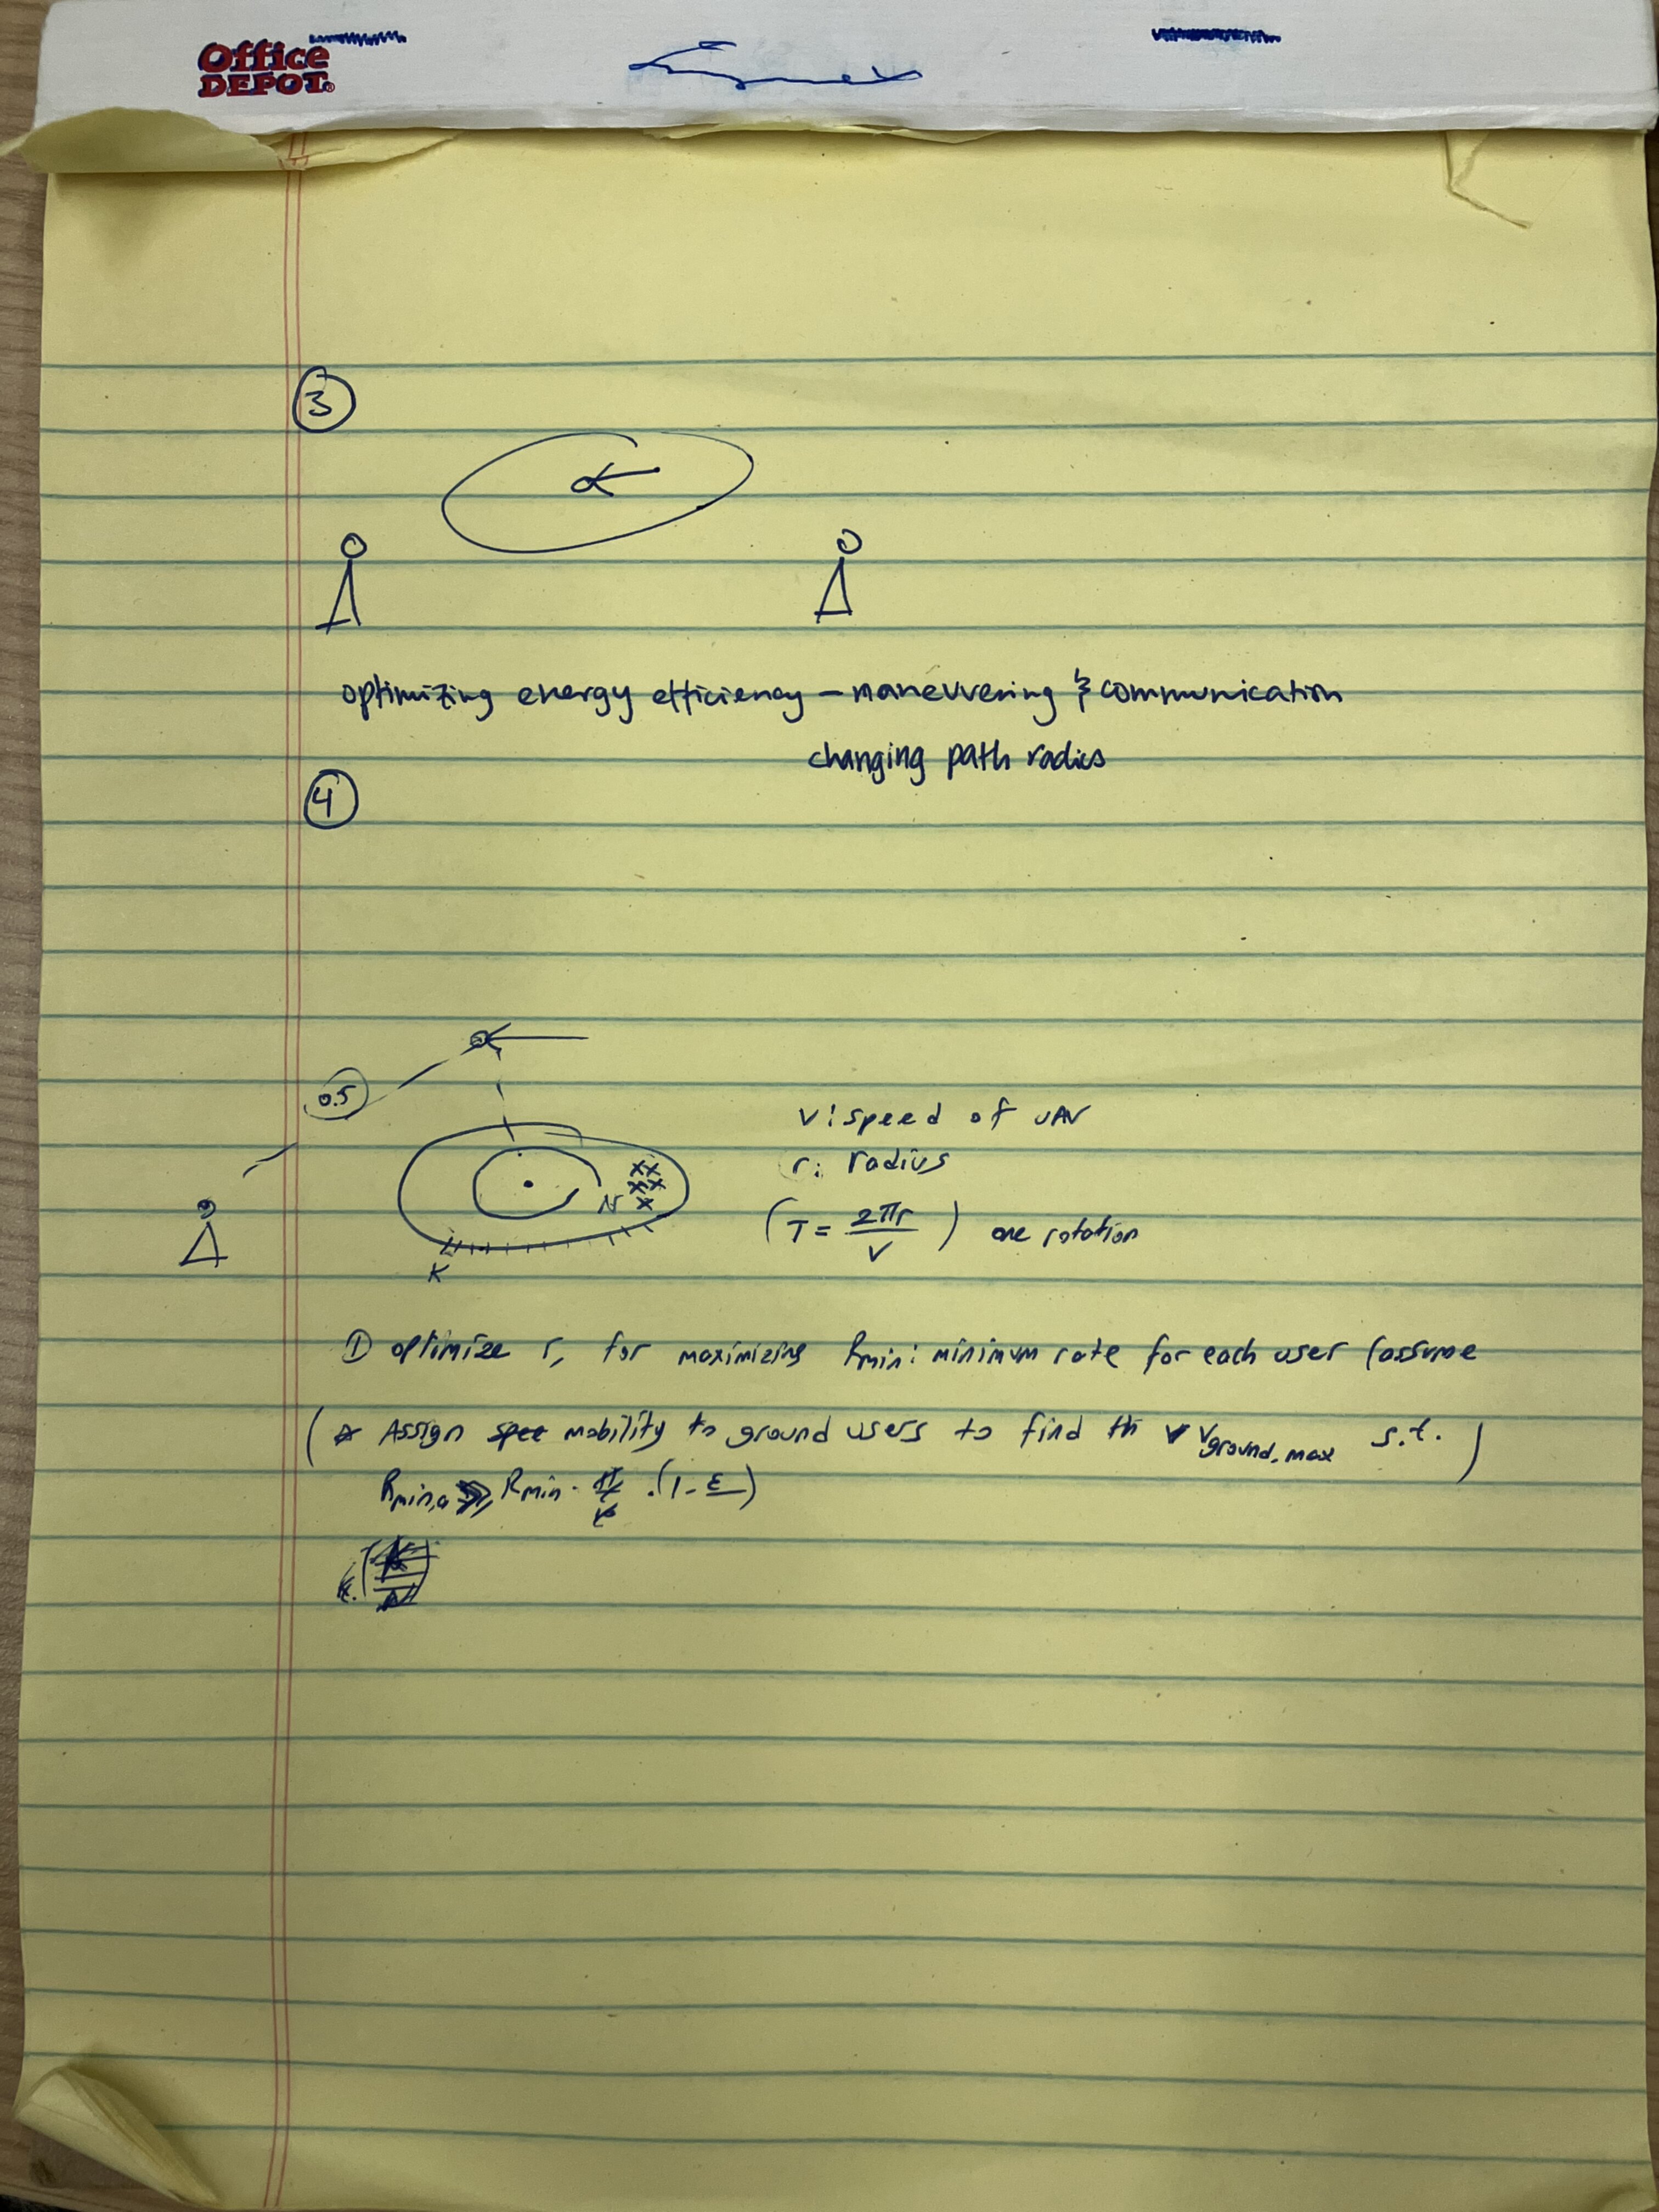 Office
DEPOT
3
optimizing energy efficiency – maneuvering & communication
changing path radius
4
0.5
V: speed of UAV
r: radius
(T = 2πr / V) one rotation
N
K
① optimize r, for maximizing Rmin: minimum rate for each user (assume
(* Assign mobility to ground users to find th V Vground,max s.t. )
Rmin · (1-ε)